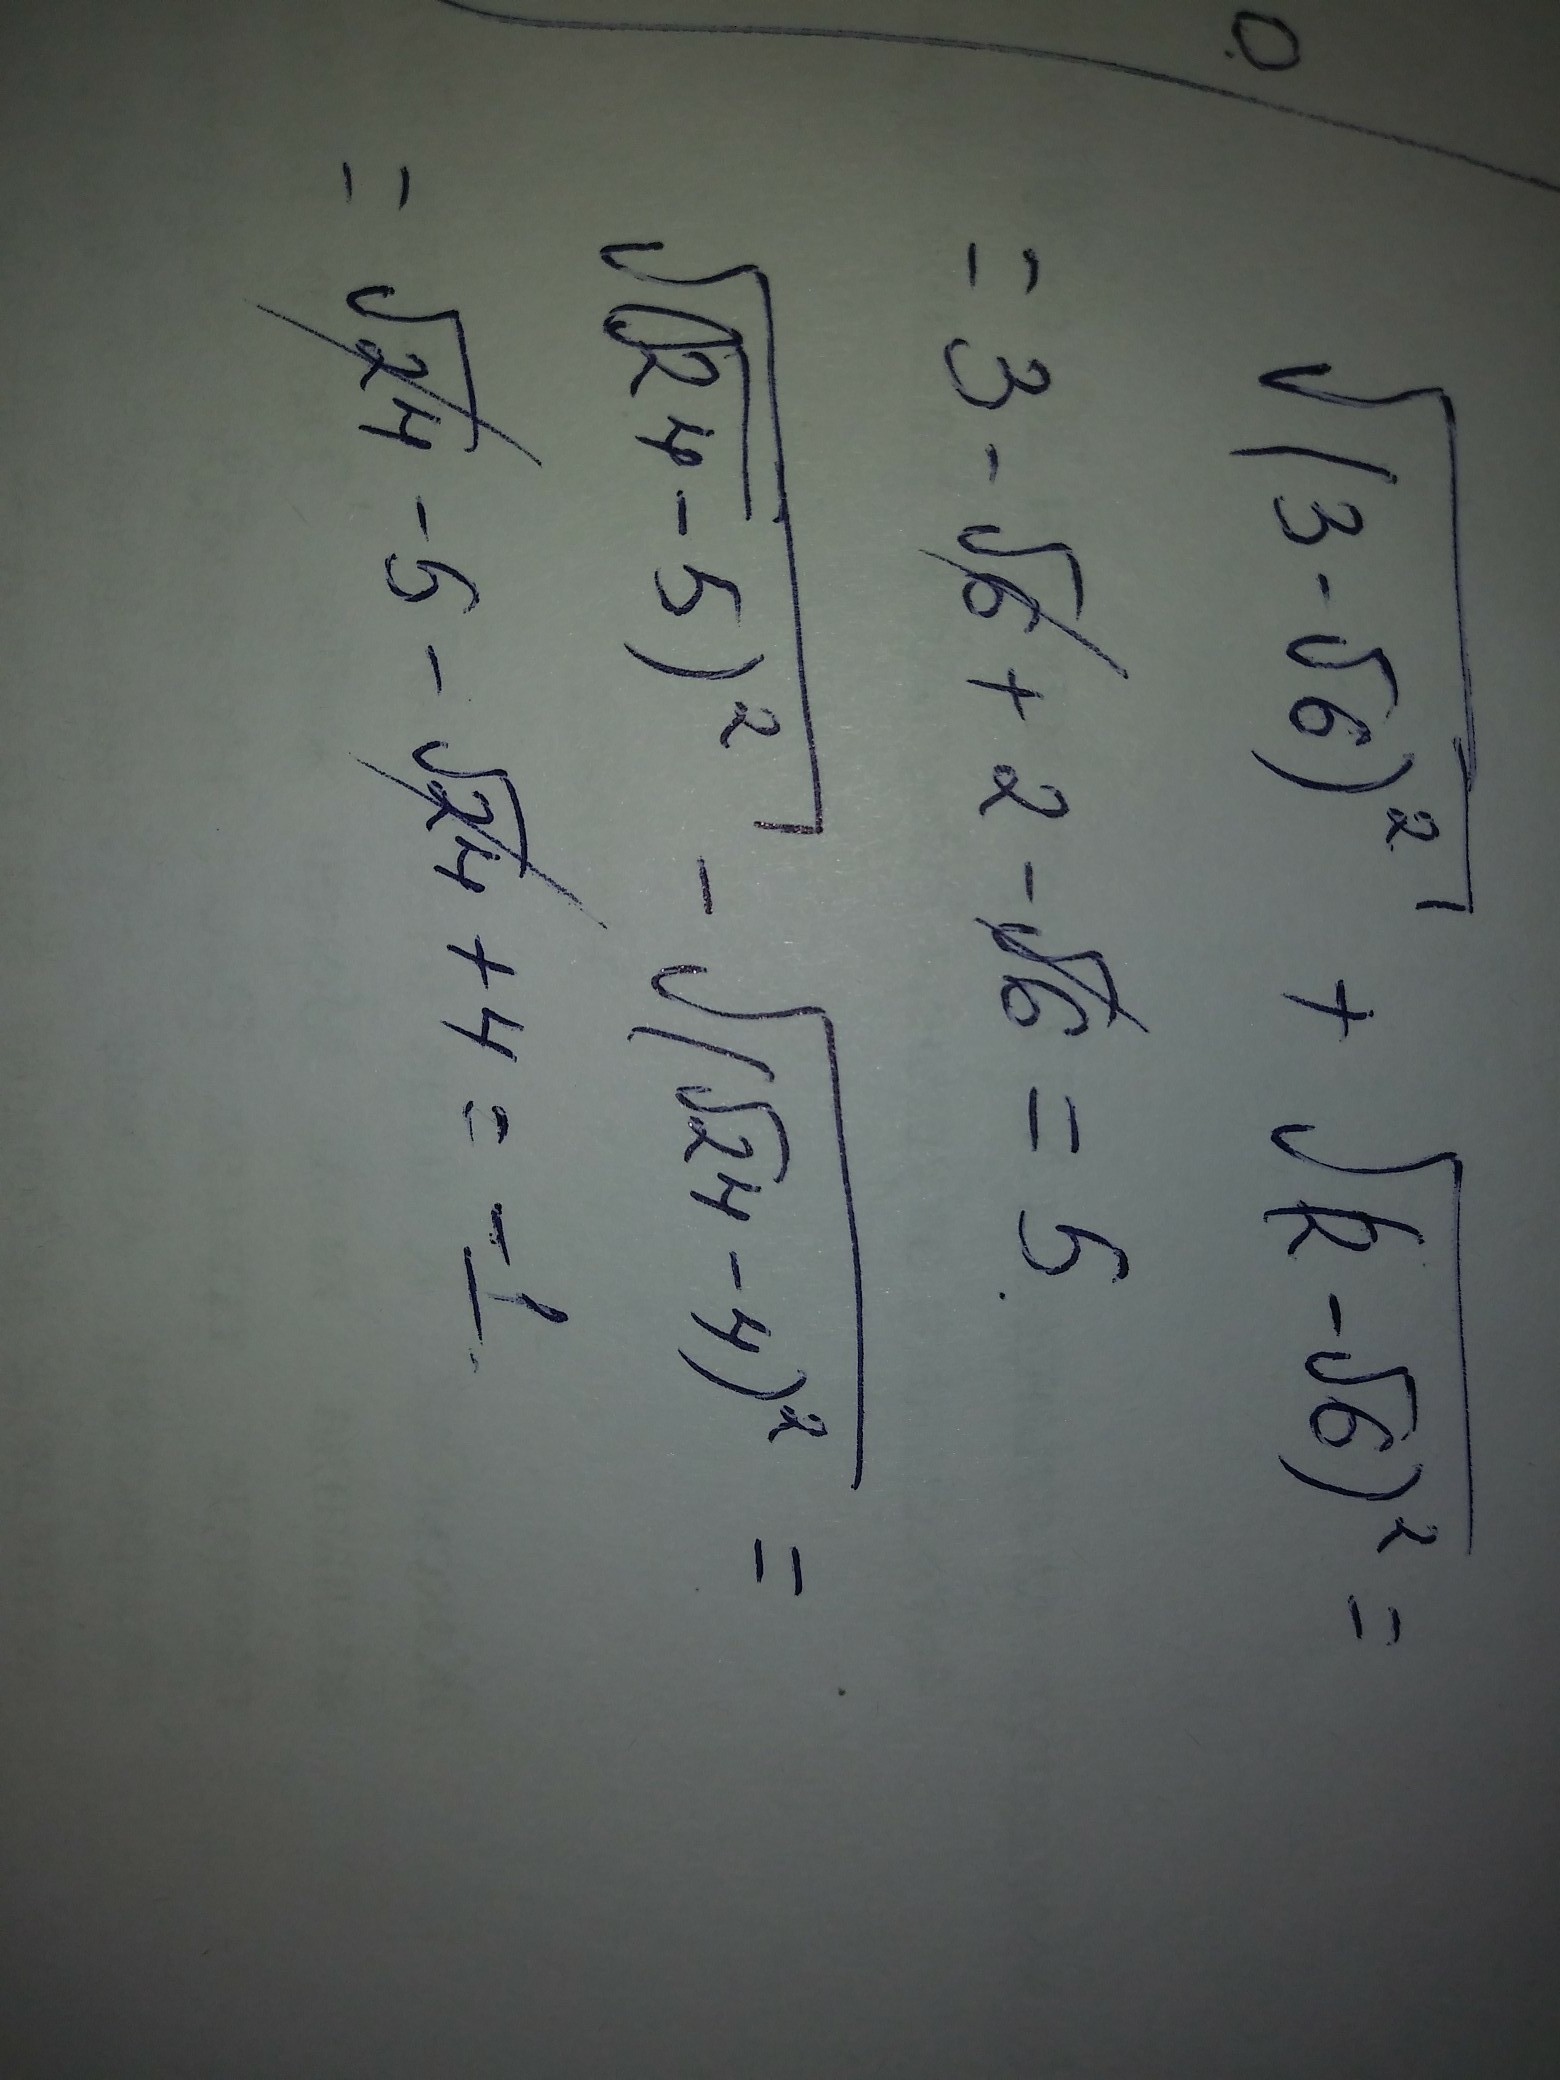 0
√(3-√6)² + √(2-√6)² =
= 3 - √6 + 2 - √6 = 5
√(√24-5)² - √(√24-4)² =
= √24 - 5 - √24 + 4 = -1